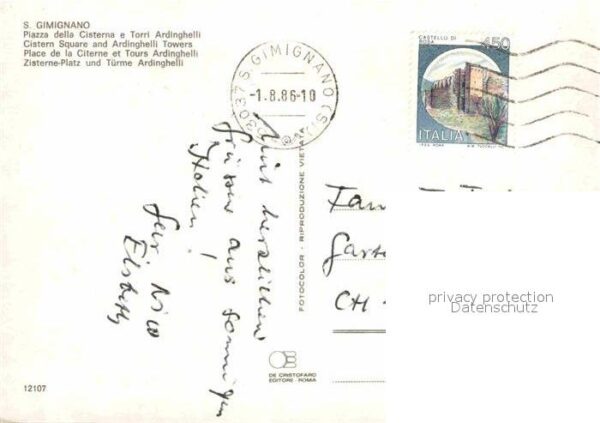 S. GIMIGNANO
Piazza della Cisterna e Torri Ardinghelli
Cistern Square and Ardinghelli Towers
Place de la Citerne et Tours Ardinghelli
Zisterne-Platz und Türme Ardinghelli
53037 S. GIMIGNANO (SI)
-1.8.86-10
CASTELLO DI
ROSA
450
ITALIA
herzlichen
Grüsse aus sonnigen
Italien!
Nico
Elisabeth
Fam
Garte
CH-
FOTOCOLOR - RIPRODUZIONE VIETATA
DE CRISTOFARO
EDITORE ROMA
12107
privacy protection
Datenschutz